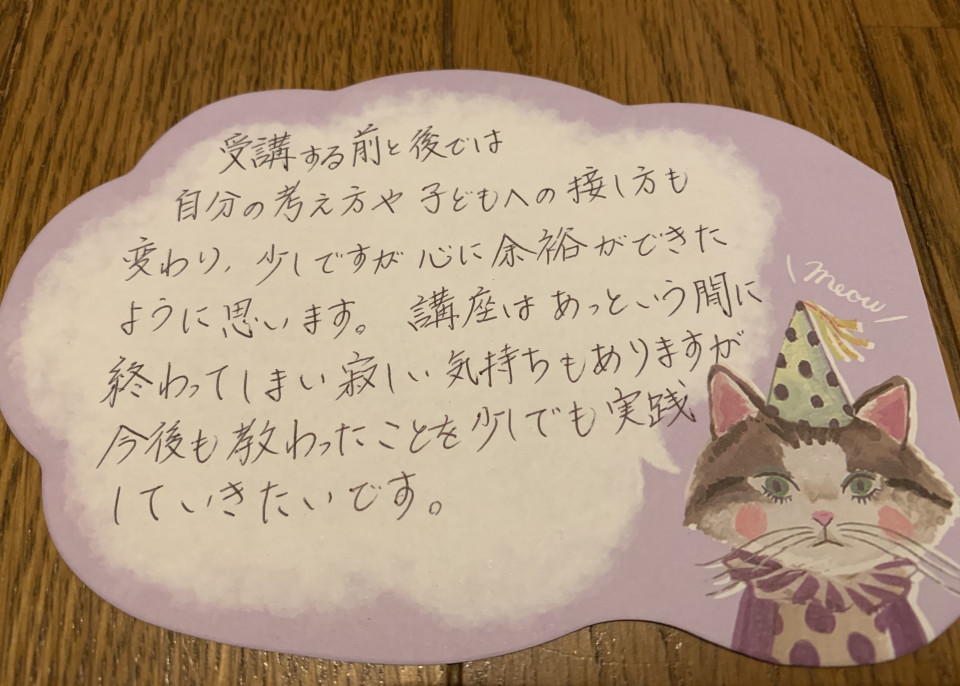 受講する前と後では
自分の考え方や子どもへの接し方も
変わり、少しですが心に余裕ができた
ように思います。講座はあっという間に
終わってしまい寂しい気持ちもありますが
今後も教わったことを少しでも実践
していきたいです。
\meow/